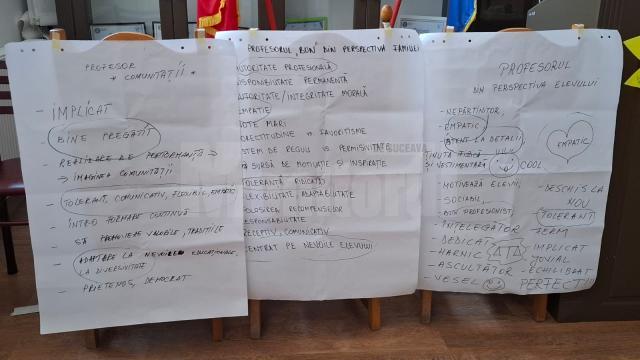 PROFESOR
* COMUNITĂȚII
- IMPLICAT
- BINE PREGĂTIT
- REALIZARE DE PERFORMANȚĂ →
→ IMAGINEA COMUNITĂȚII
- TOLERANT, COMUNICATIV, FLEXIBIL, EMPATIC
- ÎNTR-O FORMARE CONTINUĂ
- SĂ PROMOVEZE VALORILE, TRADIȚIILE
- ADAPTARE LA NEVOILE EDUCAȚIONALE,
LA DIVERSITATE
- PRIETENOS, DEMOCRAT
PROFESORUL „BUN" DIN PERSPECTIVA FAMILIEI
AUTORITATE PROFESIONALĂ
DISPONIBILITATE PERMANENTĂ
AUTORITATE/INTEGRITATE MORALĂ
EMPATIE
NOTE MARI
CORECTITUDINE vs FAVORITISME
SISTEM DE REGULI vs PERMISIVITATE
SURSĂ DE MOTIVAȚIE ȘI INSPIRAȚIE
TOLERANȚĂ RIDICATĂ
FLEXIBILITATE, ADAPTABILITATE
FOLOSIREA RECOMPENSELOR
RESPONSABILITATE
RECEPTIV, COMUNICATIV
CENTRAT PE NEVOILE ELEVULUI
SUCEAVA
PROFESORUL
DIN PERSPECTIVA ELEVULUI
- NEPĂRTINITOR,
- EMPATIC
- ATENT LA DETALII,
ȚINUTĂ FIZICĂ
ȘI VESTIMENTARĂ COOL
- MOTIVEAZĂ ELEVII,
- SOCIABIL,
- BUN PROFESIONIST,
- ÎNȚELEGĂTOR
- DEDICAT
- HARNIC
- ASCULTĂTOR
- VESEL
EMPATIC
- DESCHIS LA
NOU
TOLERANT
FERM
IMPLICAT
JOVIAL
- ECHILIBRAT
PERFECT!